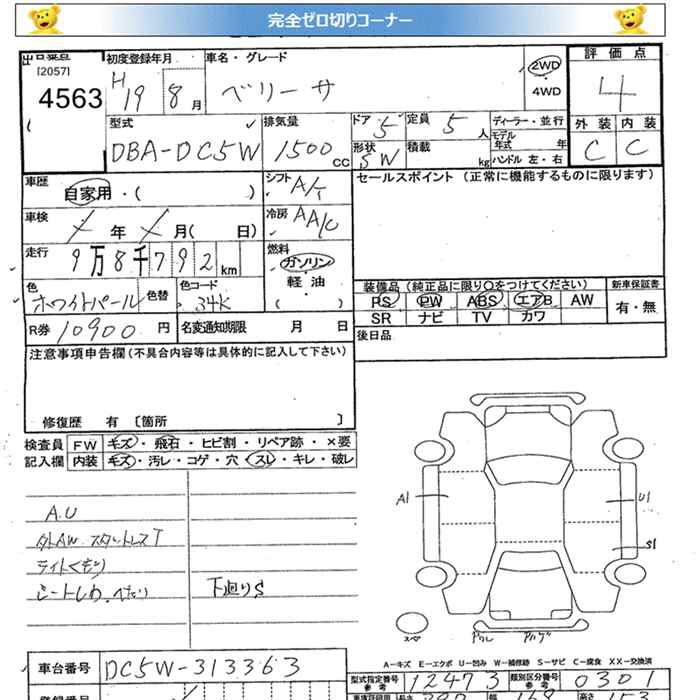 完全ゼロ切りコーナー
出品番号 初度登録年月 車名・グレード 2WD 評価点
[2057] H19 8月 ベリーサ 4WD 4
4563
型式 排気量 ドア 5 定員 5人 ディーラー・並行 外装 内装
DBA-DC5W 1500cc 形状 SW 積載 kg モデル年式 年 C C
ハンドル 左・右
車歴 自家用・( ) シフト A/T セールスポイント (正常に機能するものに限ります)
車検 年 月( 日) 冷房 AA/C
走行 9万8千792km 燃料 ガソリン
軽油
( )
色 ホワイトパール 色替 色コード 34K
装備品 (純正品に限り○をつけてください) 新車保証書
PS PW ABS エアB AW 有・無
SR ナビ TV カワ
R券 10900円 名変通知期限 月 日 後日品
注意事項申告欄 (不具合内容等は具体的に記入して下さい)
修復歴 有 〔箇所 〕
検査員 FW キズ・飛石・ヒビ割・リペア跡・×要
記入欄 内装 キズ・汚レ・コゲ・穴・スレ・キレ・破レ
A1 U1
S1
A.U
外AW スタットレスT
ライトくもり
シートしわ.へたり 下廻りS
スペア
A-キズ E-エクボ U-凹み W-補修跡 S-サビ C-腐食 XX-交換済
車台番号 DC5W-313363
型式指定番号 参考 12473 類別区分番号 参考 0301